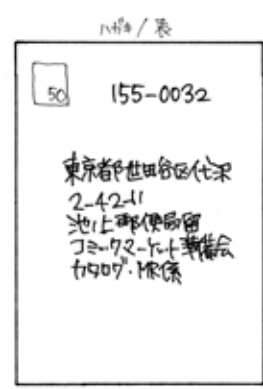 ハガキ/表
50
155-0032
東京都世田谷区代沢
2-42-11
池上郵便局留
コミックマーケット準備会
カタログ・MR係